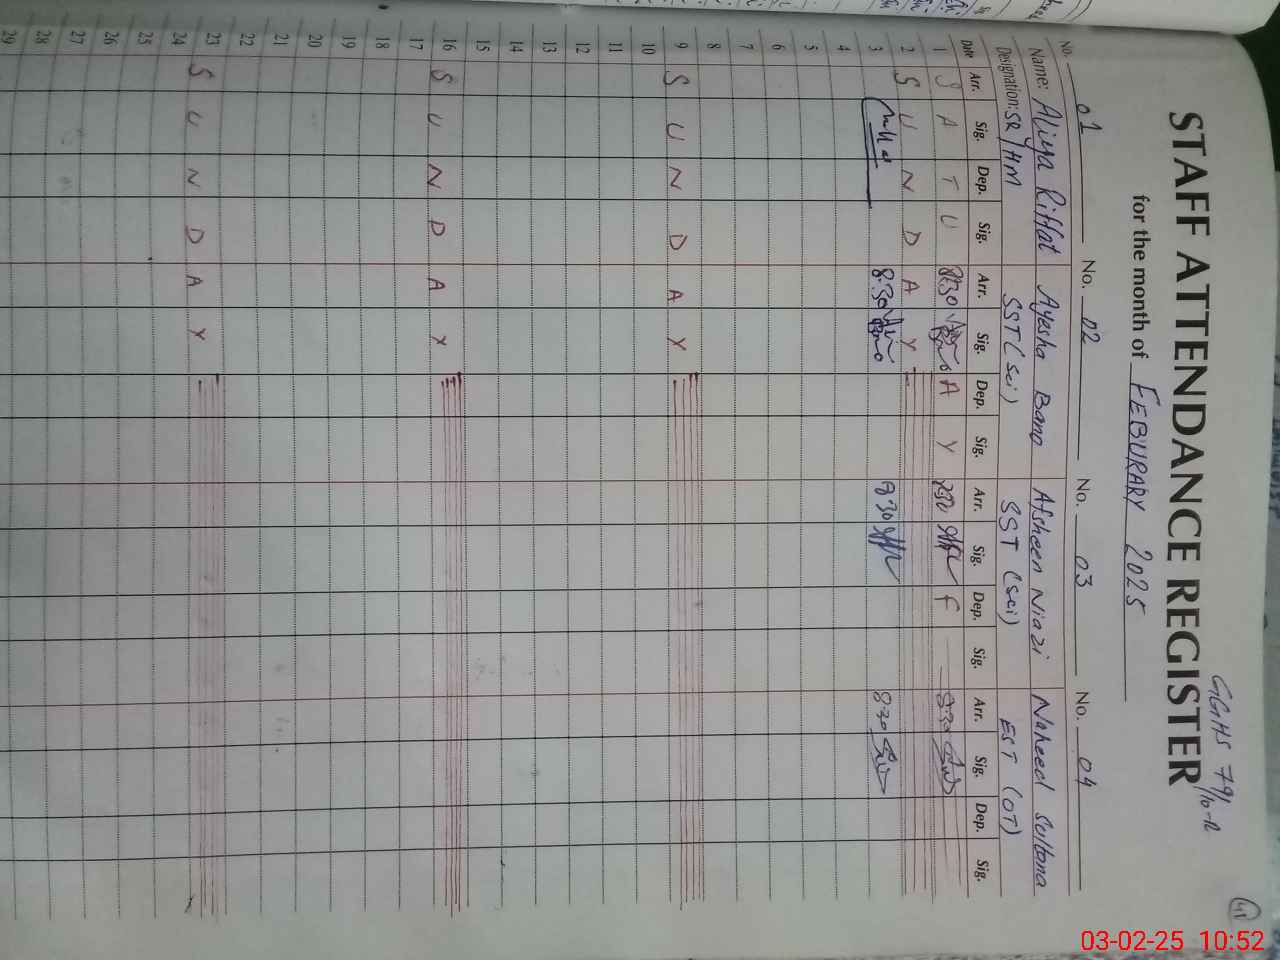 GGHS 79/10-R
41
STAFF ATTENDANCE REGISTER
for the month of FEBURARY 2025
No. 01 No. 02 No. 03 No. 04
Name: Aliya Riffat Ayesha Bano Afsheen Niazi Naheed Sultana
Designation: SR/HM SST (sci) SST (sci) EST (OT)
Date Arr. Sig. Dep. Sig. Arr. Sig. Dep. Sig. Arr. Sig. Dep. Sig. Arr. Sig. Dep. Sig.
1 S A T U 8:30 A Y F 8:30
2 S U N D A Y
3 8:30 8:30 8:30
4
5
6
7
8
9 S U N D A Y
10
11
12
13
14
15
16 S U N D A Y
17
18
19
20
21
22
23 S U N D A Y
24
25
26
27
28
29
03-02-25 10:52